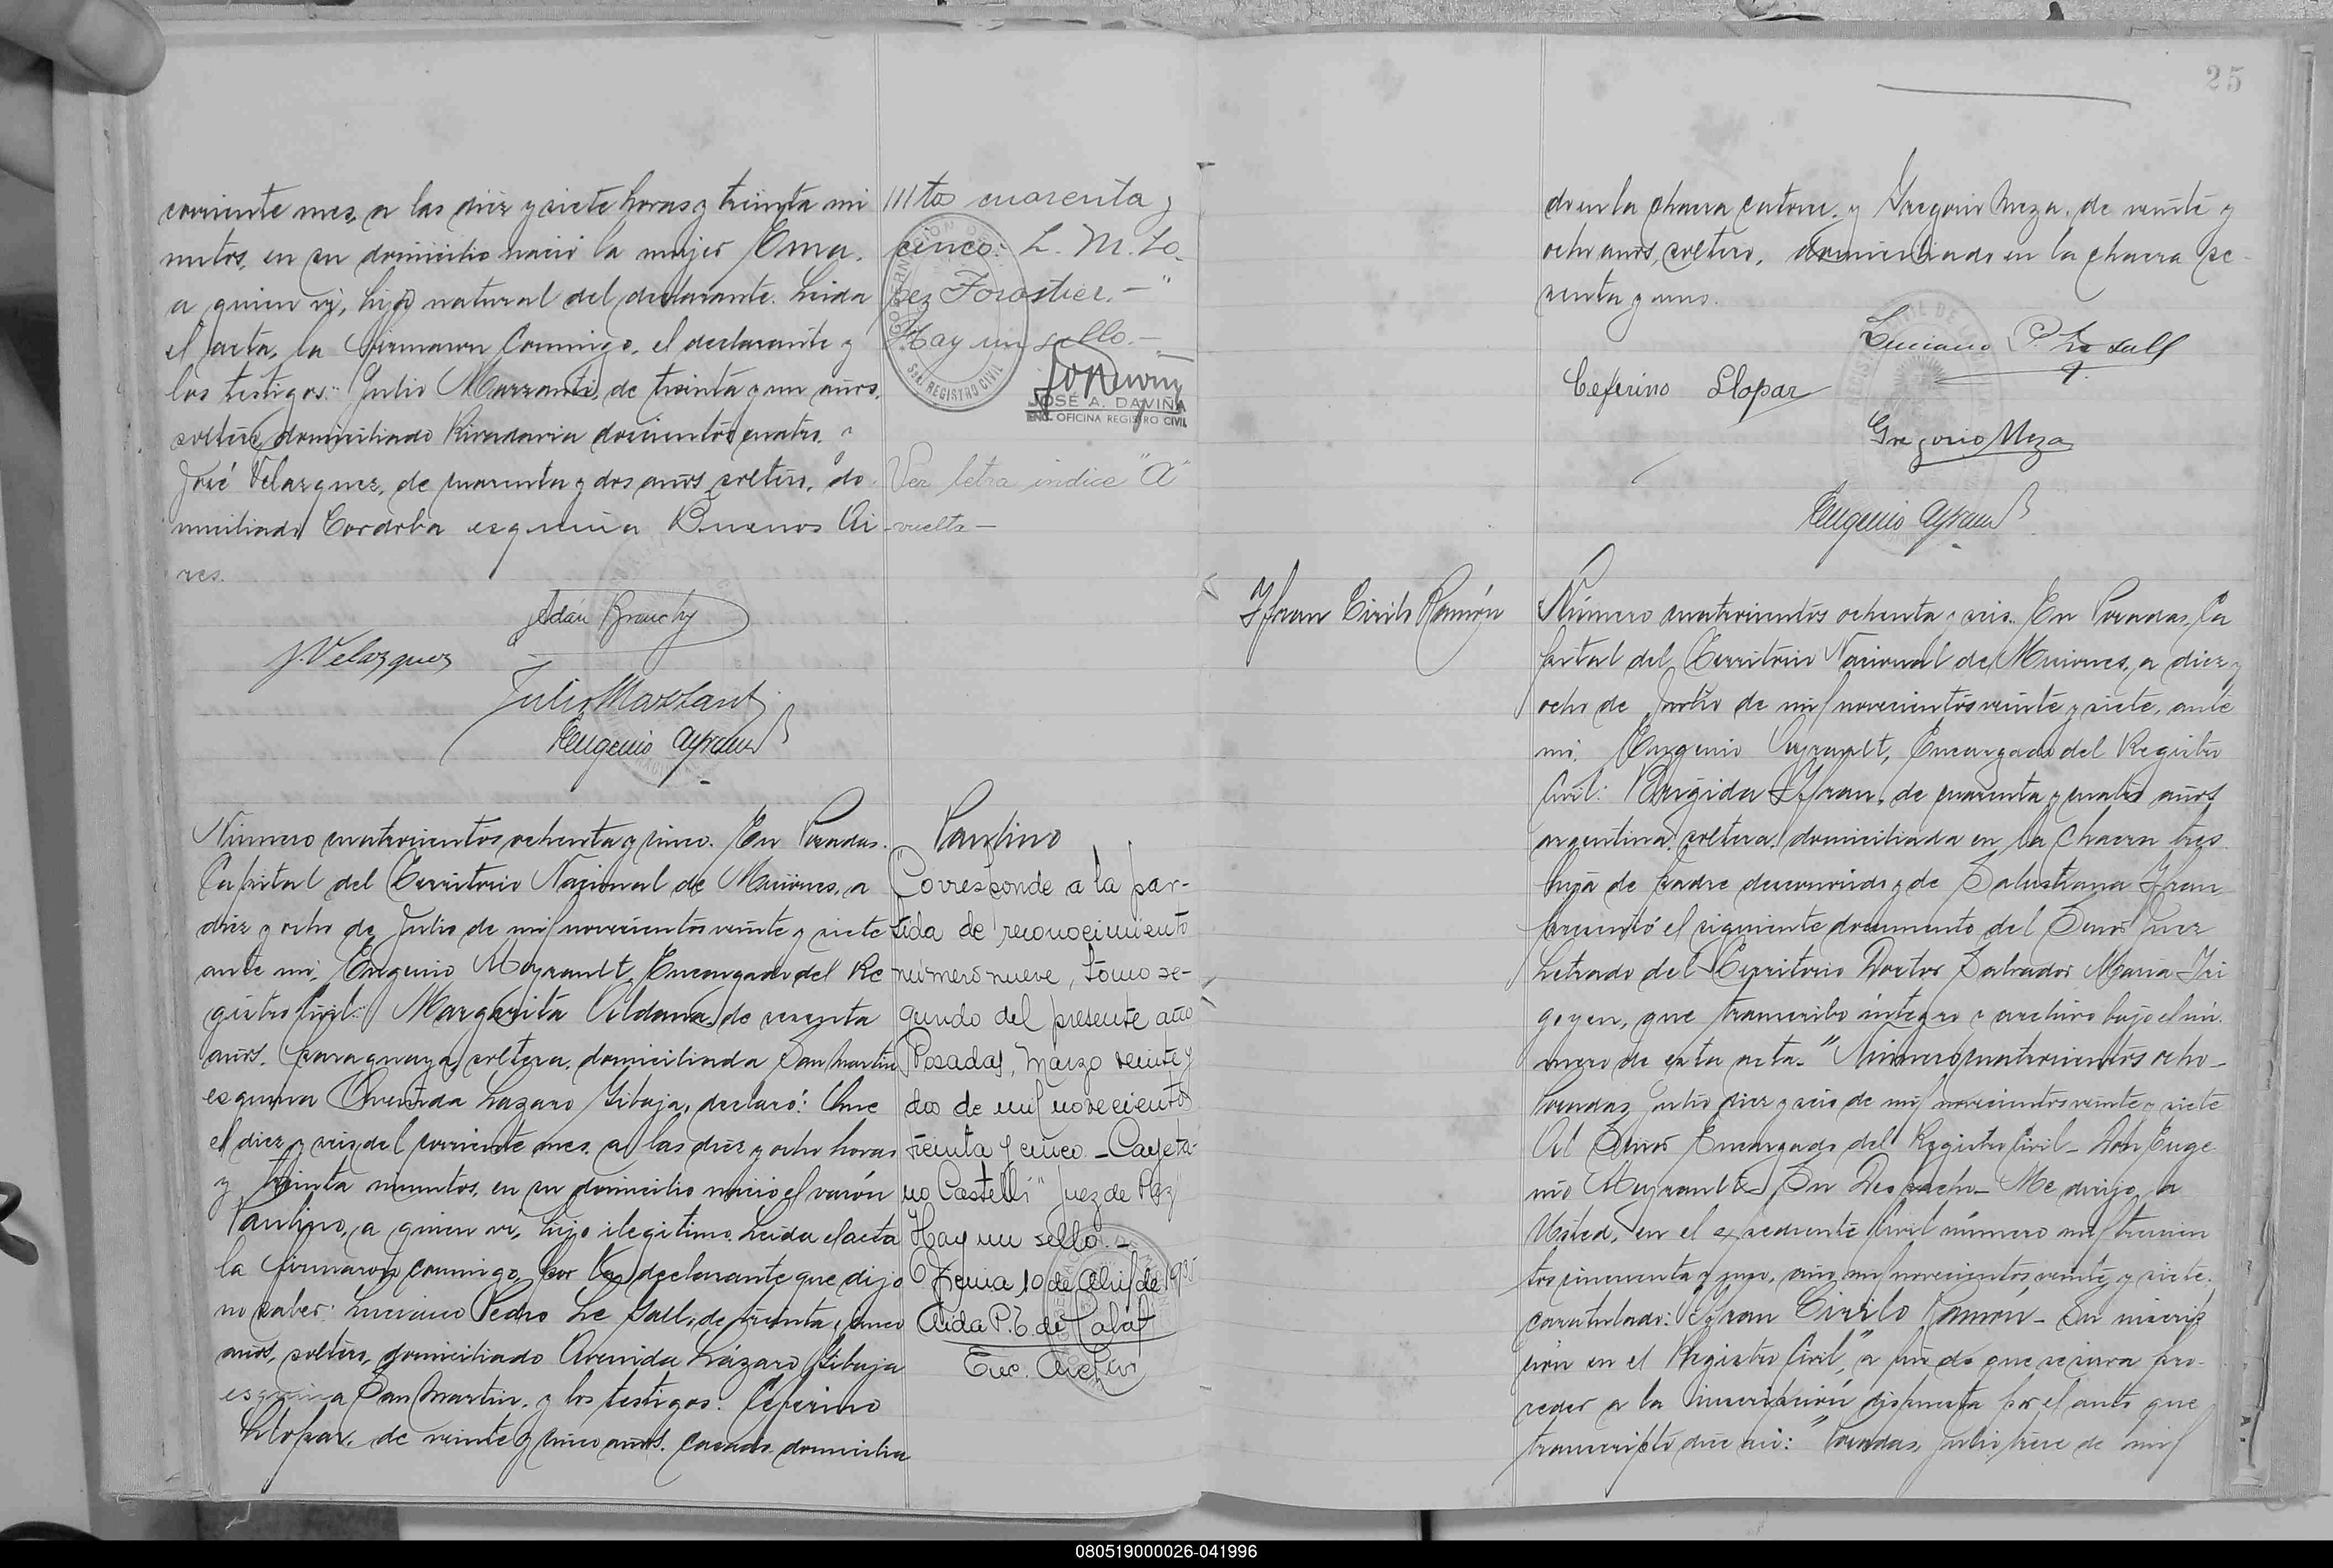 corriente mes, a las diez y siete horas y treinta mi
nutos, en su domicilio nació la mujer Ema,
a quien vi, hija natural del declarante. Leida
el acta, la firmaron conmigo, el declarante y
los testigos: Julio Marzanti, de treinta y un años,
soltero, domiciliado Rivadavia doscientos cuatro, y
José Velazquez, de cuarenta y dos años, soltero, do
miciliado Cordoba esquina Buenos Ai
res.
Adán
J. Velazquez
Julio
Eugenio Ayrault
ntos cuarenta y
cinco: L. M. Lo
pez Forastier.—"
Hay un sello.—
REGISTRO CIVIL
JOSÉ A. DAVIÑA
ENC. OFICINA REGISTRO CIVIL
Ver letra indice "A"
vuelta—
Número cuatrocientos ochenta y cinco. En Posadas,
Capital del Territorio Nacional de Misiones, a
diez y ocho de Julio de mil novecientos veinte y siete
ante mi, Eugenio Ayrault, Encargado del Re
gistro Civil: Margarita Aldana, de sesenta
años, paraguaya, soltera, domiciliada San Martin
esquina Avenida Lazaro Gibaja, declaró: Que
el diez y seis del corriente mes, a las diez y ocho horas
y treinta minutos, en su domicilio nació el varón
Paulino, a quien vi, hijo ilegitimo. Leida el acta
la firmaron conmigo, por la declarante que dijo
no saber: Luciano Pedro Le Gall, de treinta y cinco
años, soltero, domiciliado Avenida Lázaro Gibaja
esquina San Martin, y los testigos: Ceferino
Llopar, de veinte y cinco años, casado, domicilia
Paulino
"Corresponde a la par-
tida de reconocimiento
número nueve, tomo se-
gundo del presente año
Posadas, Marzo veinte y
dos de mil novecientos
treinta y cinco.—Cayeta-
no Castelli" Juez de Paz
Hay un sello.—
10 de Abril de 1935
Aida P. T. de
Enc.
25
do en la chacra catorce, y Gregorio Meza, de veinte y
ocho años, soltero, domiciliado en la chacra se
senta y uno.
Luciano P. Le Gall
Ceferino Llopar
Gregorio Meza
Eugenio Ayrault
Ifran Cirilo Ramón
Número cuatrocientos ochenta y seis. En Posadas, Ca
pital del Territorio Nacional de Misiones, a diez y
ocho de Julio de mil novecientos veinte y siete, ante
mi, Eugenio Ayrault, Encargado del Registro
Civil: Brigida Ifran, de cuarenta y cuatro años
argentina, soltera, domiciliada en la Chacra tres
hija de padre desconocido y de Salustiana Ifran
presentó el siguiente documento del Señor Juez
Letrado del Territorio Doctor Salvador Maria Iri
goyen, que transcribo integro y archivo bajo el nú
mero de esta acta. "Número cuatrocientos ocho—
Posadas, Julio diez y seis de mil novecientos veinte y siete
Al Señor Encargado del Registro Civil—Don Euge
nio Ayrault—Su Despacho—Me dirijo a
Usted, en el expediente Civil número mil trescien
tos cincuenta y uno, año mil novecientos veinte y siete,
caratulado: "Ifran Cirilo Ramón—Su inscrip
ción en el Registro Civil", a fin de que se sirva pro-
ceder a la inscripción dispuesta por el auto que
transcripto dice asi: "Posadas, Julio trece de mil
080519000026-041996